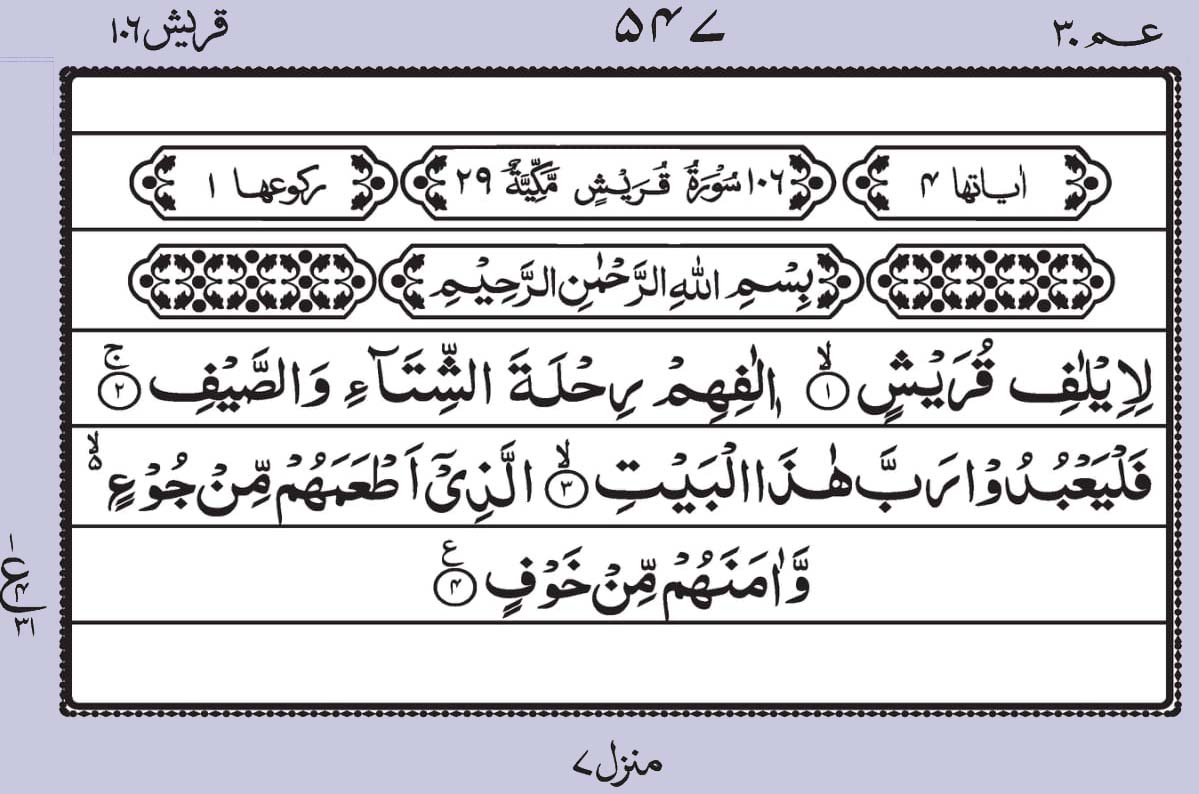 عـم ٣٠ ۵۴۷ قریش ١٠٦
اٰیاتها ۴ ١٠٦ سُوْرَةُ قُرَيْشٍ مَّكِّيَّةٌ ٢٩ رکوعها ١
بِسْمِ اللّٰهِ الرَّحْمٰنِ الرَّحِيْمِ
لِاِيْلٰفِ قُرَيْشٍ ۙ‏﴿١﴾ اٖلٰفِهِمْ رِحْلَةَ الشِّتَآءِ وَالصَّيْفِ ۚ‏﴿٢﴾
فَلْيَعْبُدُوْا رَبَّ هٰذَا الْبَيْتِ ۙ‏﴿٣﴾ الَّذِيْۤ اَطْعَمَهُمْ مِّنْ جُوْعٍ ۙ۬
وَّاٰمَنَهُمْ مِّنْ خَوْفٍ ﴿۴﴾ ع
١ ع ۴ ٣١
منزل ۷